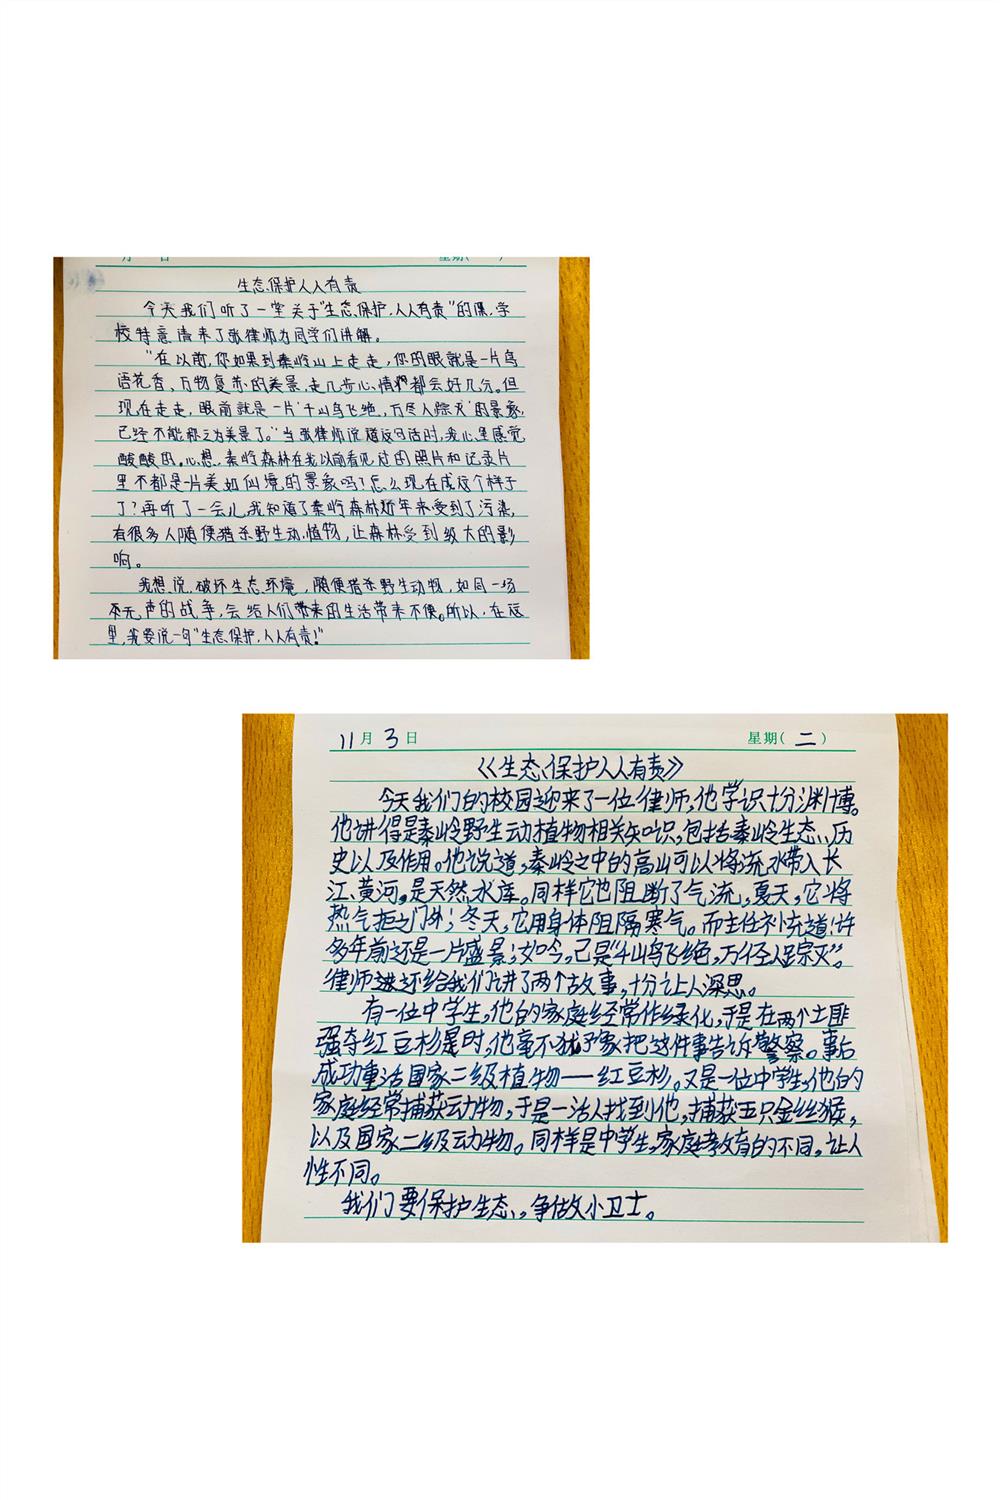 月 日 星期( )
生态保护人人有责
今天我们听了一堂关于“生态保护,人人有责”的课,学
校特意请来了张律师为同学们讲解。
“在以前,你如果到秦岭山上走走,你的眼就是一片鸟
语花香、万物复苏的美景,走几步心情都会好几分。但
现在走走,眼前就是一片‘千山鸟飞绝,万尽人踪灭’的景象,
已经不能称之为美景了。”当张律师说道这句话时,我心里感觉
酸酸的。心想:秦岭森林在我以前看见过的照片和记录片
里不都是一片美如仙境的景象吗?怎么现在成这个样子
了?再听了一会儿,我知道了秦岭森林近年来受到了污染,
有很多人随便猎杀野生动、植物,让森林受到极大的影
响。
我想说:破坏生态环境,随便猎杀野生动物,如同一场
无声的战争,会给人们带来的生活带来不便。所以,在这
里,我要说一句“生态保护,人人有责!”
11月3日 星期(二)
《生态保护人人有责》
今天我们的校园迎来了一位律师,他学识十分渊博。
他讲得是秦岭野生动植物相关知识,包括秦岭生态、历
史以及作用。他说道,秦岭之中的高山可以将流水带入长
江、黄河,是天然水库。同样它也阻断了气流,夏天,它将
热气拒之门外;冬天,它用身体阻隔寒气。而主任补充道:许
多年前还是一片盛景;如今,已是“千山鸟飞绝,万径人踪灭”。
律师还给我们讲了两个故事,十分让人深思。
有一位中学生,他的家庭经常作绿化,于是在两个土匪
强夺红豆杉是时,他毫不犹予象把这件事告诉警察。事后
成功重活国家二级植物——红豆杉。又是一位中学生,他的
家庭经常捕获动物,于是一活人找到他,捕获五只金丝猴,
以及国家二级动物。同样是中学生,家庭教育的不同,让人
性不同。
我们要保护生态,争做小卫士。